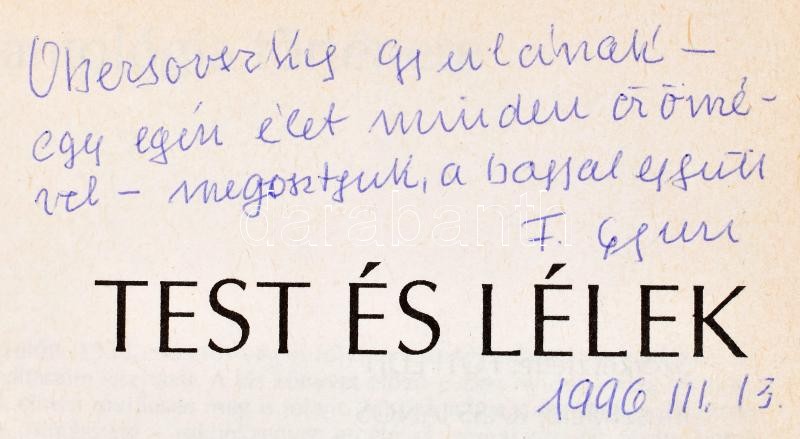 Obersovszky Gyulának –
egy egész élet minden örömé-
vel – megosztjuk, a bajjal együtt
darabanth
F. Gyuri
TEST ÉS LÉLEK
1996 III. 13.